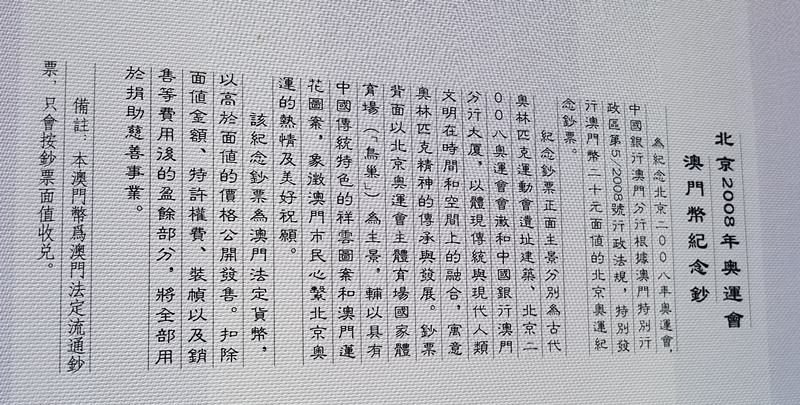 北京2008年奧運會
澳門幣紀念鈔
為紀念北京二00八年奧運會，
中國銀行澳門分行根據澳門特別行
政區第5/2008號行政法規，特別發
行澳門幣二十元面值的北京奧運紀
念鈔票。
紀念鈔票正面主景分別為古代
奧林匹克運動會遺址建築、北京二
00八奧運會會徽和中國銀行澳門
分行大廈，以體現傳統與現代人類
文明在時間和空間上的融合，寓意
奧林匹克精神的傳承與發展。鈔票
背面以北京奧運會主體育場國家體
育場（「鳥巢」）為主景，輔以具有
中國傳統特色的祥雲圖案和澳門蓮
花圖案，象徵澳門市民心繫北京奧
運的熱情及美好祝願。
該紀念鈔票為澳門法定貨幣，
以高於面值的價格公開發售。扣除
面值金額、特許權費、裝幀以及銷
售等費用後的盈餘部分，將全部用
於捐助慈善事業。
備註：本澳門幣爲澳門法定流通鈔
票，只會按鈔票面值收兌。